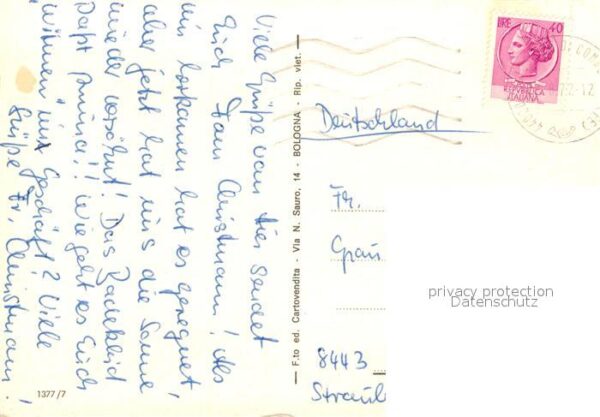 Viele Grüße von hier sendet
Euch Fam. Christmann! Als
wir herkamen hat es geregnet,
aber jetzt hat uns die Sonne
wieder versöhnt! Das Badekleid
paßt prima!! Wie geht es Euch
im Geschäft? Viele
Grüße Fr. Christmann!
1377/7
— F.to ed. Cartovendita - Via N. Sauro, 14 - BOLOGNA - Rip. viet. —
LIRE 40
REPVBBLICA
ITALIANA
Deutschland
Fr.
8443
Straub
privacy protection
Datenschutz